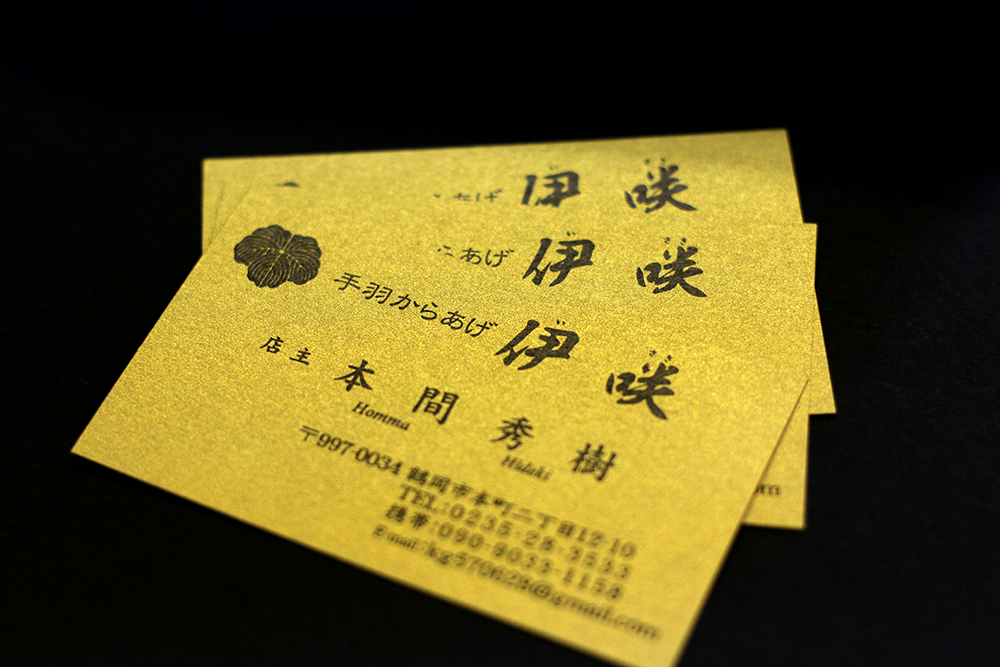 伊咲
あげ 伊咲
手羽からあげ 伊咲
店主 本間秀樹
Homma Hideki
〒997-0034 鶴岡市本町二丁目12-10
TEL:0235-28-3533
携帯:090-9033-1158
E-mail:hg570628@gmail.com